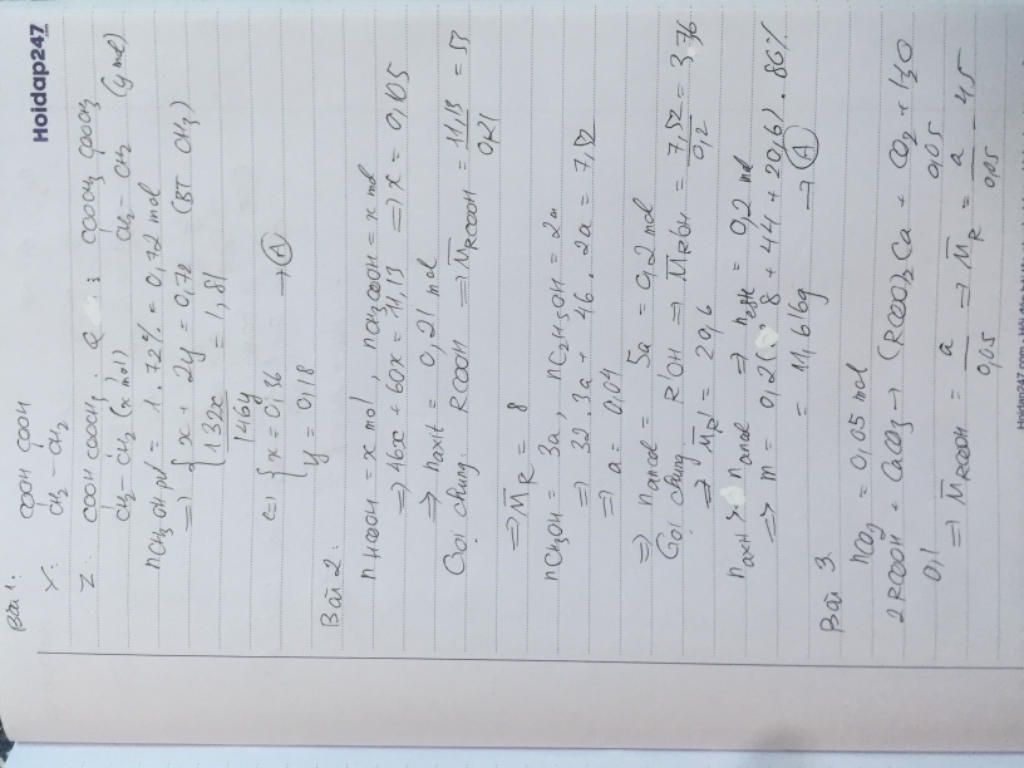 Hoidap247
Bài 1:
Y: COOH COOH
CH2 - CH2
Z: COOH COOCH3 ; Q : COOCH3 COOCH3
CH2 - CH2 (x mol) CH2 - CH2 (y mol)
nCH3OH pư = 1 . 72% = 0,72 mol
=> { x + 2y = 0,72 (BT CH3)
132x / 146y = 1,81
<=> { x = 0,36 → (A)
y = 0,18
Bài 2:
nHCOOH = x mol, nCH3COOH = x mol
=> 46x + 60x = 11,13 => x = 0,105
=> naxit = 0,21 mol
Gọi chung RCOOH => M̅RCOOH = 11,13 / 0,21 = 53
=> M̅R = 8
nCH3OH = 3a, nC2H5OH = 2a
=> 32.3a + 46.2a = 7,52
=> a = 0,04
=> nancol = 5a = 0,2 mol
Gọi chung R'OH => M̅R'OH = 7,52 / 0,2 = 37,6
=> M̅R' = 20,6
naxit > nancol => neste = 0,2 mol
=> m = 0,2( 8 + 44 + 20,6) . 80%
= 11,616g → (A)
Bài 3.
nCO2 = 0,05 mol
2RCOOH + CaCO3 → (RCOO)2Ca + CO2 + H2O
0,1 0,05 0,05
=> M̅RCOOH = a / 0,05 => M̅R = a / 0,05 - 45